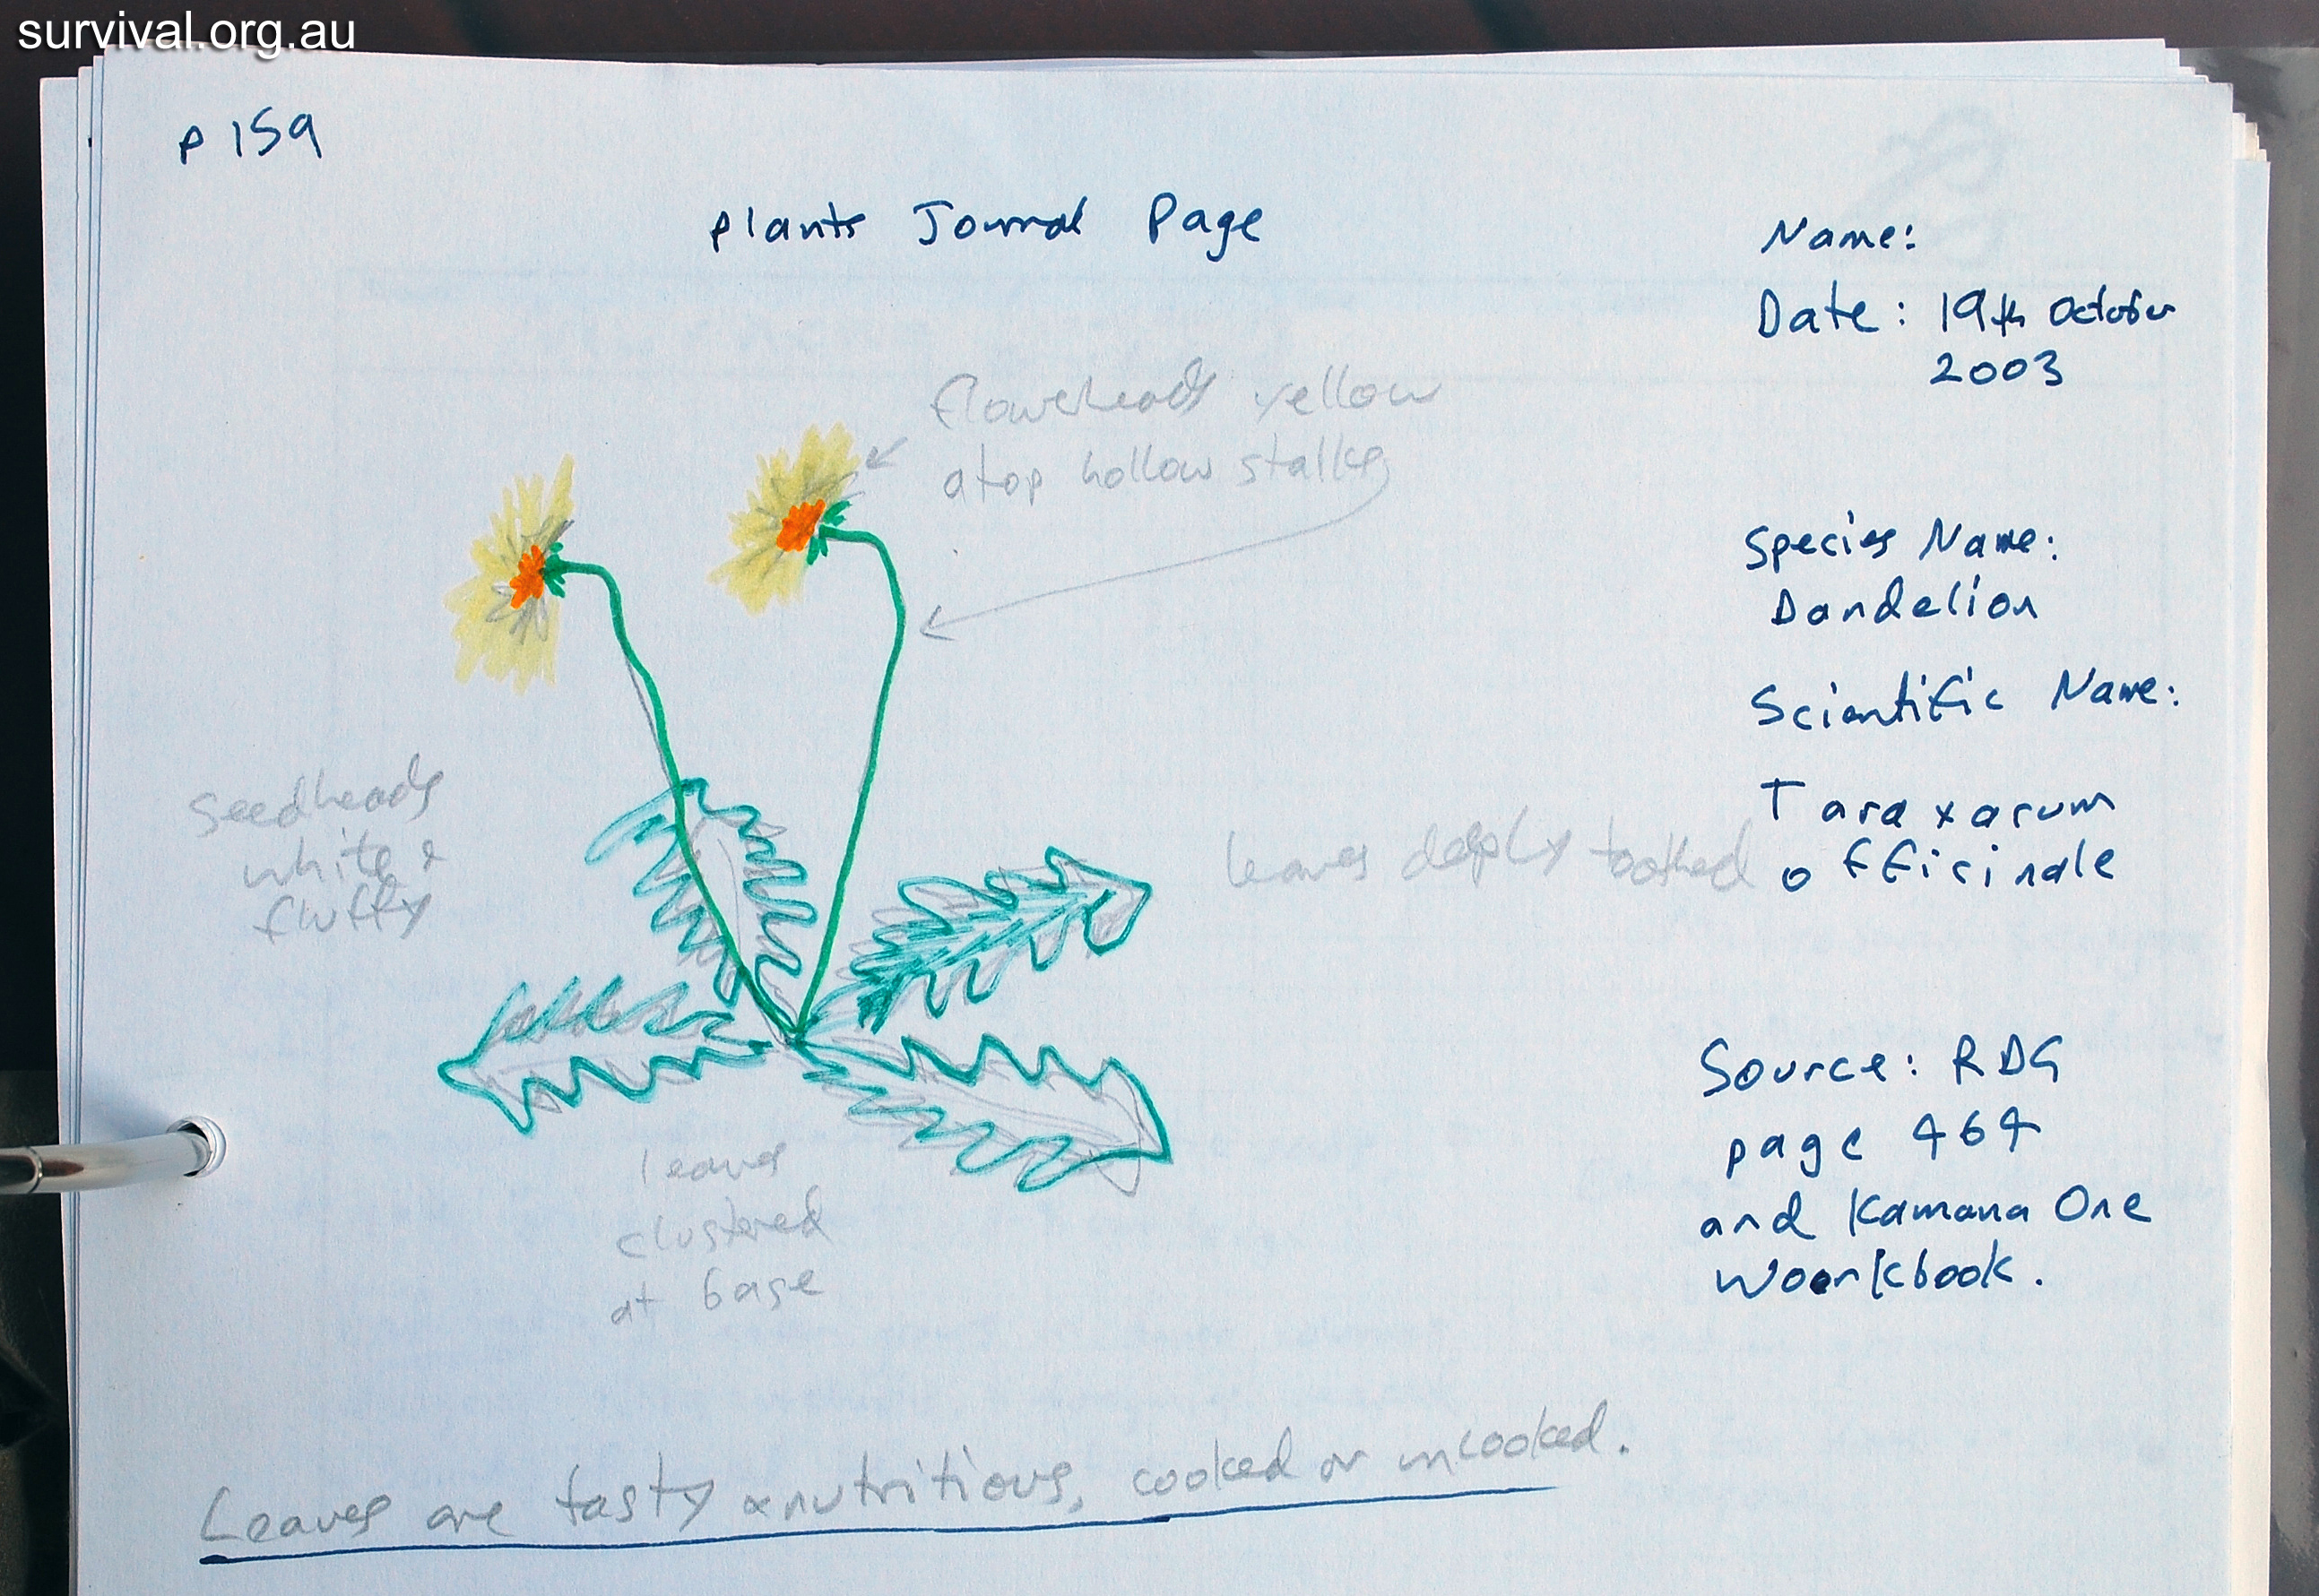 survival.org.au
p 159
Plants Journal Page
Name:
Date: 19th October
2003
flowerheads yellow
atop hollow stalks
Species Name:
Dandelion
Scientific Name:
Taraxacum
officinale
Seedheads
white &
fluffy
leaves deeply toothed
Source: RDG
page 464
and Kamana One
Woorkbook.
leaves
clustered
at base
Leaves are tasty & nutritious, cooked or uncooked.